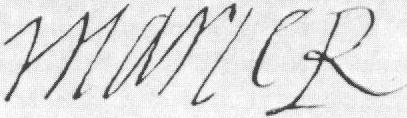 Marie R